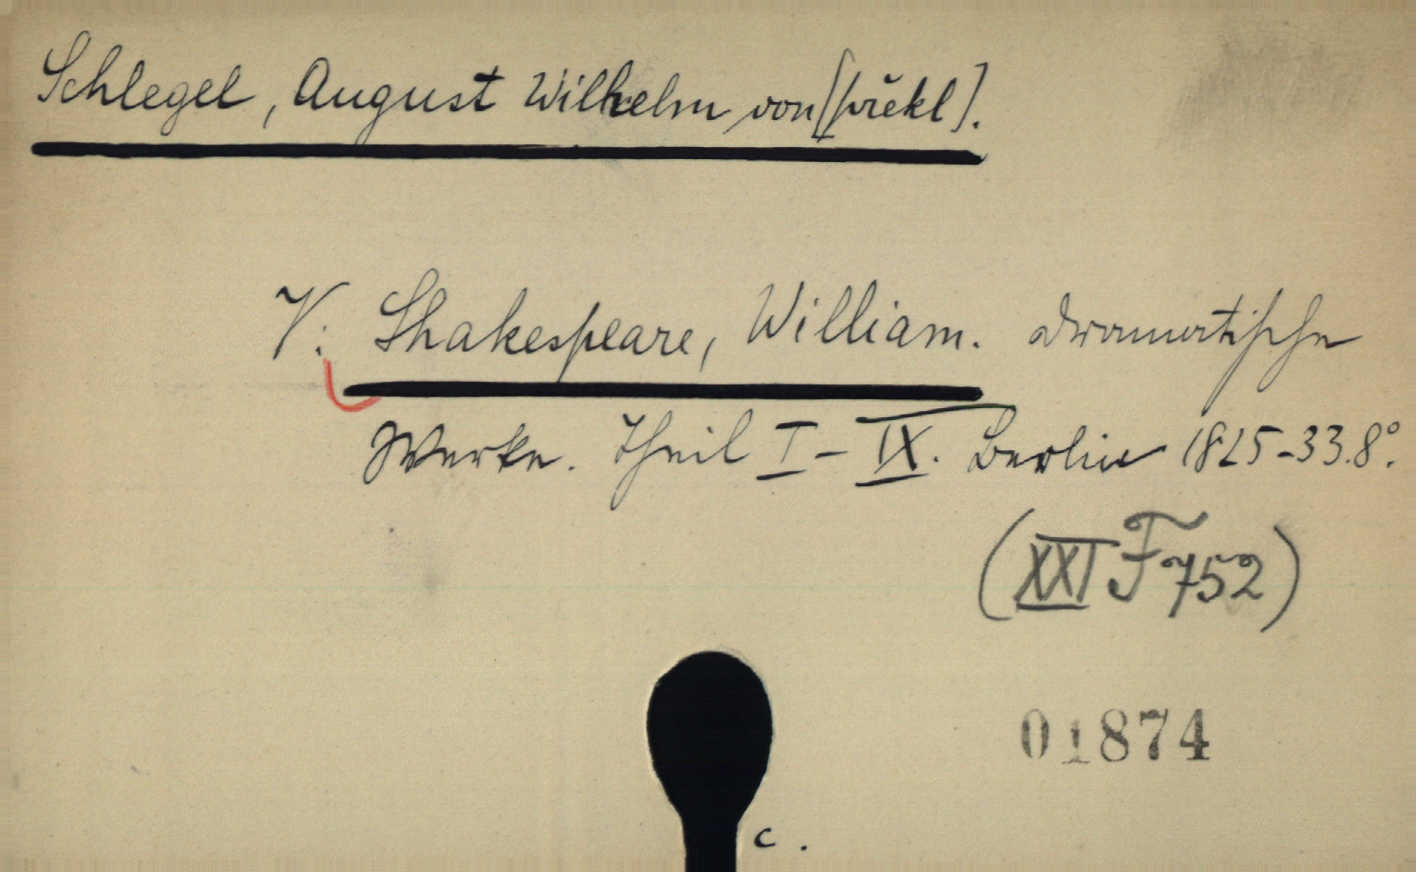 Schlegel, August Wilhelm von [překl].
V: Shakespeare, William. Dramatische
Werke. Theil I-IX. Berlin 1825-33.8°.
(XXI F 752)
01874
c.